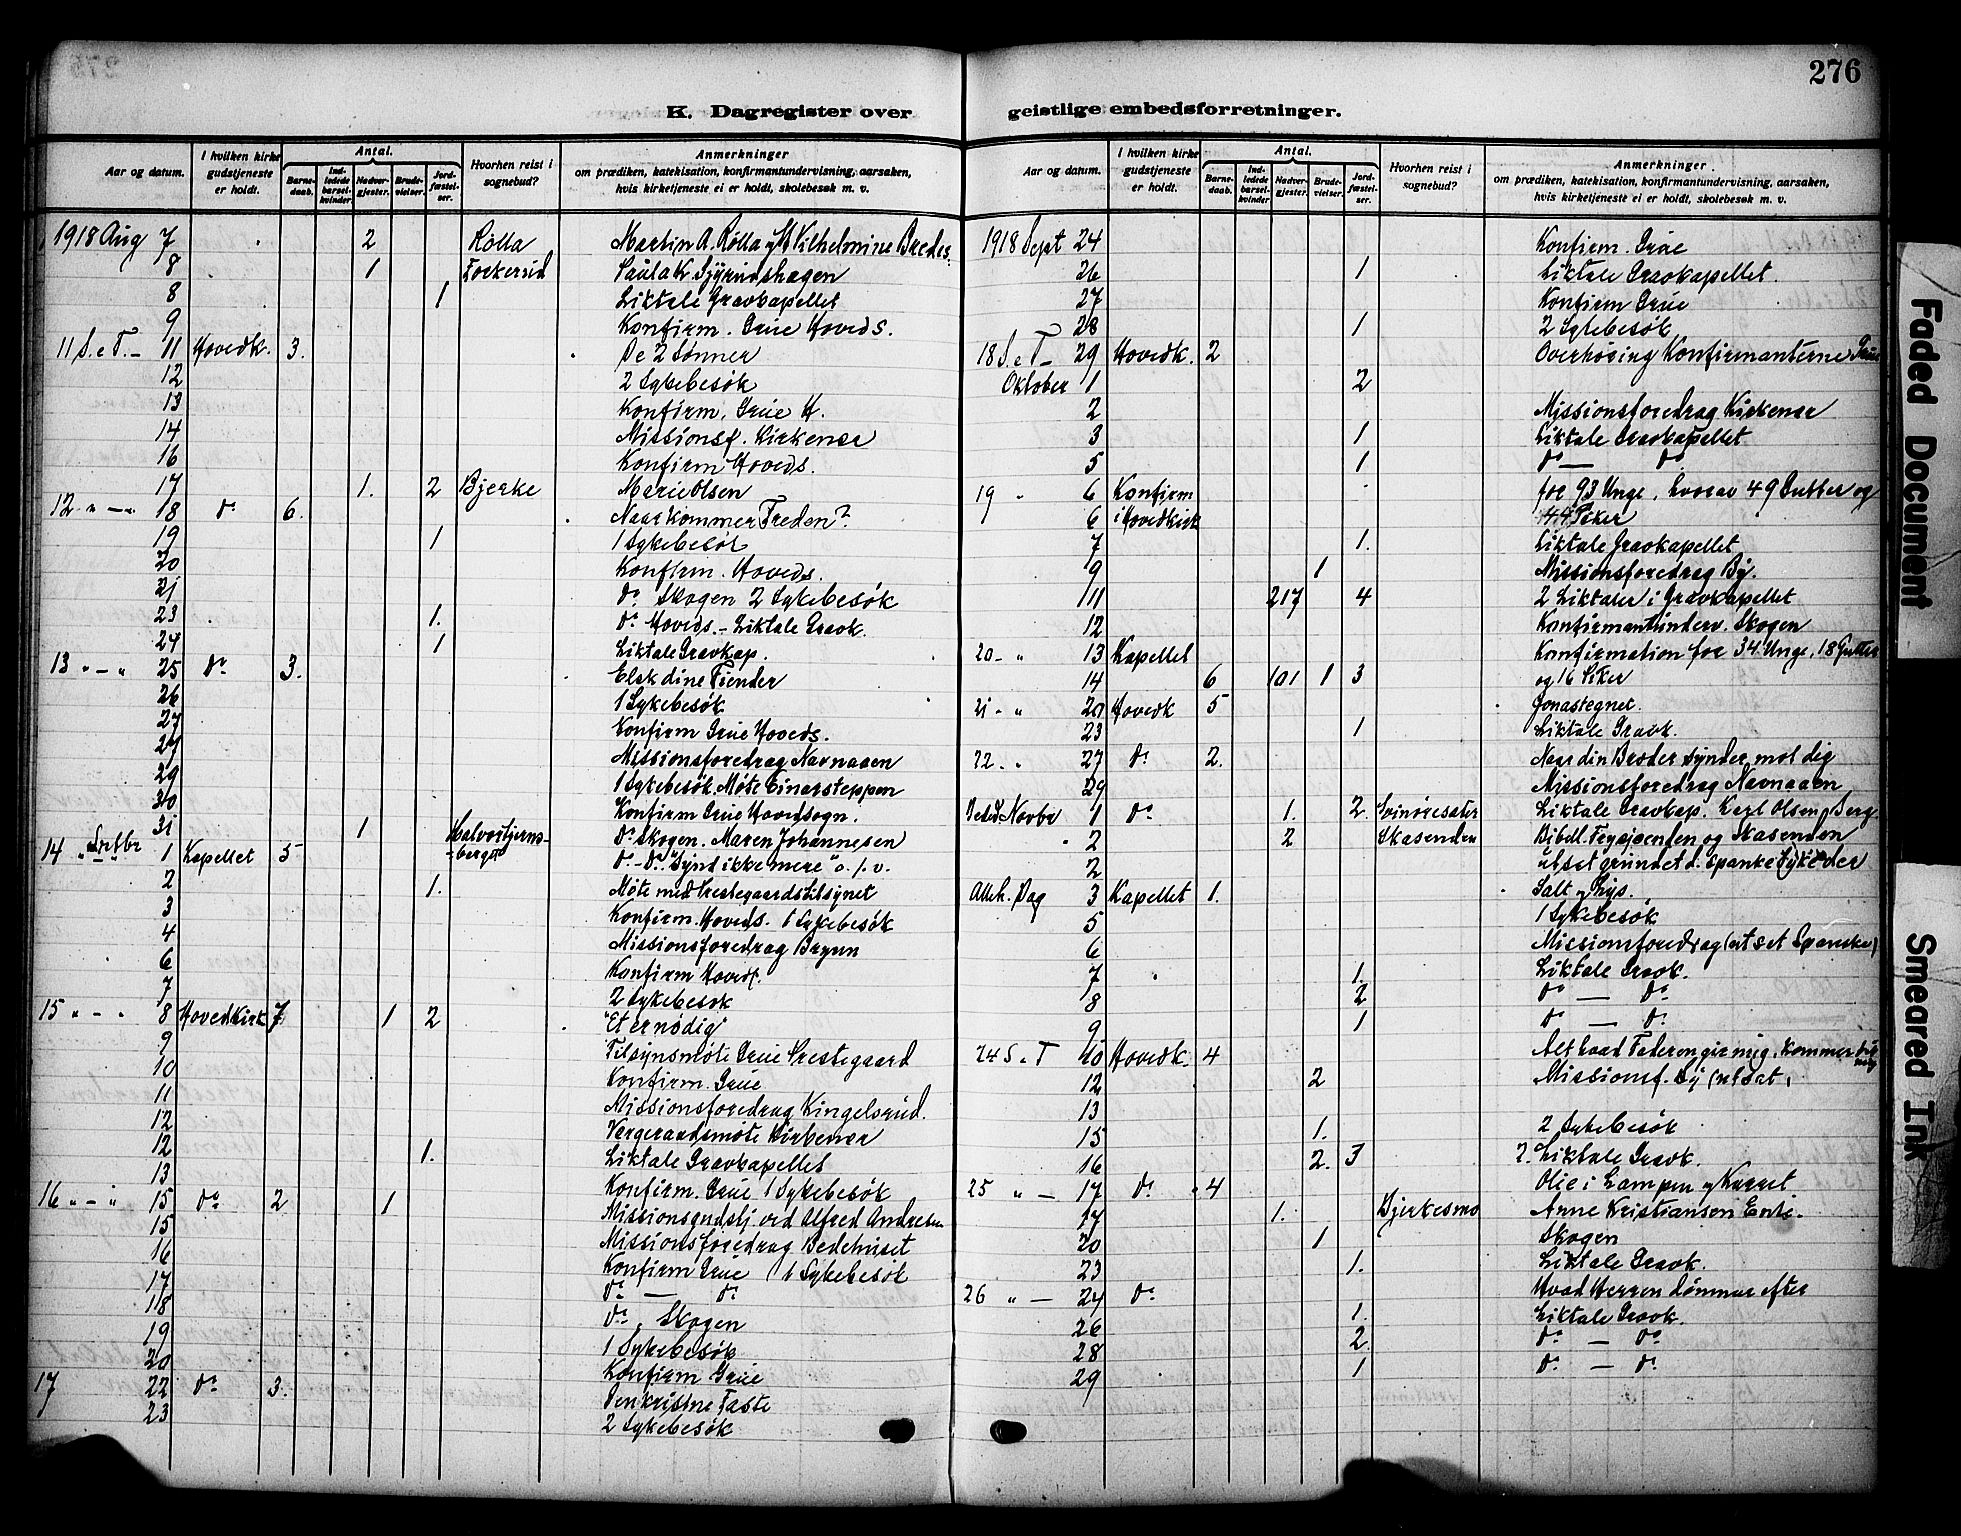 276
K. Dagregister over geistlige embedsforretninger.
Aar og datum.
I hvilken kirke gudstjeneste er holdt.
Antal.
Barnedaab.
Indledede barselkvinder.
Nadvergjester.
Brudevielser.
Jordfæstelser.
Hvorhen reist i sognebud?
Anmerkninger
om prædiken, katekisation, konfirmantundervisning, aarsaken,
hvis kirketjeneste ei er holdt, skolebesøk m. v.
1918 Aug 7 2 Rolla Martin A. Rølla og M Vilhelmine Bredes.
8 1
8 1 Liktale Gravkapellet
9 Konfirm. Grue Hoveds.
11 S. e T. – 11 Hovedk. 3. De 2 Sønner
12 2 Sykebesøk
13 Konfirm. Grue H.
14 Missionsf. Kirkenær
16 Konfirm Hoveds.
17 1. 2 Bjerke Marie Olsen
12 " — " 18 do 6. Naar kommer Freden?
19 1 1 Sykebesøk
20 Konfirm. Hoveds.
21 do Skogen 2 Sykebesøk
23 1. do Hoveds. – Liktale Gravk.
24 1 Liktale Gravkap.
13 " – " 25 do 3. Elsk dine Fiender
26 1 Sykebesøk
27 Konfirm Grue Hoveds.
27 Missionsforedrag Navnaaen
29 1 Sykebesøk. Møte Einarsteppen
30 Konfirm Grue Hovedsogn.
31 1 Halvortjernsberget do Skogen. Maren Johannesen
14 " – " Septbr 1 Kapellet 5 do – do. "Synd ikke mere" o. s. v.
2 1. Møte med Prestegaardstilsynet
3 Konfirm. Hoveds. 1 Sykebesøk
4 Missionsforedrag Brynn
6 Konfirm Hoveds.
7 2 Sykebesøk
15 " – " 8 Hovedkirk 7 1 2 "Et er nødig"
9 Tilsynsmøte Grue Prestegaard
10 Konfirm. Grue
11 Missionsforedrag Kingelsrud.
12 Vergeraadsmøte Kirkenær
12 1. Liktale Gravkapellet
13 Konfirm. Grue 1 Sykebesøk
16 " – " 15 do 2 1 Missionsgudstj ved Alfred Andresen
15 Missionsforedrag Bedehuset
16 Konfirm Grue 1 Sykebesøk
17 do — do
18 do . Skogen
19 1 Sykebesøk
20 Konfirm Grue
17 22 do 3. Den kristne Faste
23 2 Sykebesøk
Aar og datum.
I hvilken kirke gudstjeneste er holdt.
Antal.
Barnedaab.
Indledede barselkvinder.
Nadvergjester.
Brudevielser.
Jordfæstelser.
Hvorhen reist i sognebud?
Anmerkninger.
om prædiken, katekisation, konfirmantundervisning, aarsaken,
hvis kirketjeneste ei er holdt, skolebesøk m. v.
1918 Sept 24 Konfirm. Grue
26 1 Liktale Gravkapellet.
27 Konfirm Grue
28 1 2 Sykebesøk
18 S. e T – 29 Hovedk. 2 Overhøring Konfirmanterne Grue
Oktober 1 2
2 Missionsforedrag Kirkenær
3 1 Liktale Gravkapellet
5 1 do — do
19 " 6 Konfirm for 93 Unge, hvorav 49 Gutter og
6 i Hovedkirk 44 Piker
7 1. Liktale Gravkapellet
9 1 Missionsforedrag By.
11 217 4 2 Liktaler i Gravkapellet
12 Konfirmantunderv. Skogen
20 – " 13 Kapellet Konfirmation for 34 Unge, 18 Gutter
14 6 101 1 3 og 16 Piker
21 – " 20 Hovedk 5 Jonastegnet.
23 1 Liktale Gravk.
22 . " 27 do 2. Naar din Broder synder mot dig
29 Missionsforedrag Navnaaen
Novbr 1 do 1. 2 Liktale Gravkap. Karl Olsen Berg
2 2 Skasenden og Skasenden
2 utsat grundet d. spanke Syke der
Alleh. Dag 3 Kapellet 1. Salt og Lys.
5 1 Sykebesøk
6 Missionsforedrag (utset Spanske)
7 1. Liktale Gravk.
8 2 do — do
9 1 do — do
24 S. e T 10 Hovedk. 4 Alt hvad Faderen gir mig, kommer til mig
12 2 Missionsf. By (utsat,
13
15 1. 2 Sykebesøk
16 2. 3 2. Liktale Gravk.
25 " — 17 do 4 Olie i Lampen og Karret
17 1. Bjerkesmo Anne Kristiansen
20 1 Skogen
23 1. Liktale Gravk.
26 " — 24 do Hvad Herren dømmer efter
26 1. Liktale Gravk.
28 2 do — do
29 1 do — do
Faded Document
Smeared Ink